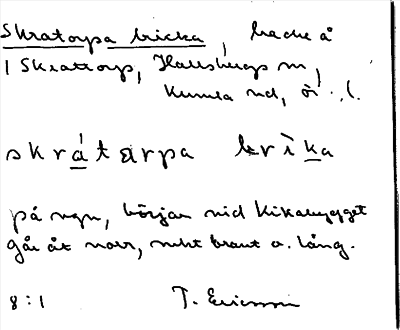 Skratorpa bricka, backe å
i Skrattorp, Hallsbergs sn,
Kumla hd, ör. l.
skrátarpa brìka
på vgn, början vid Kikabygget
Går åt norr, mkt brant o. lång.
8:1 T. Ericsson